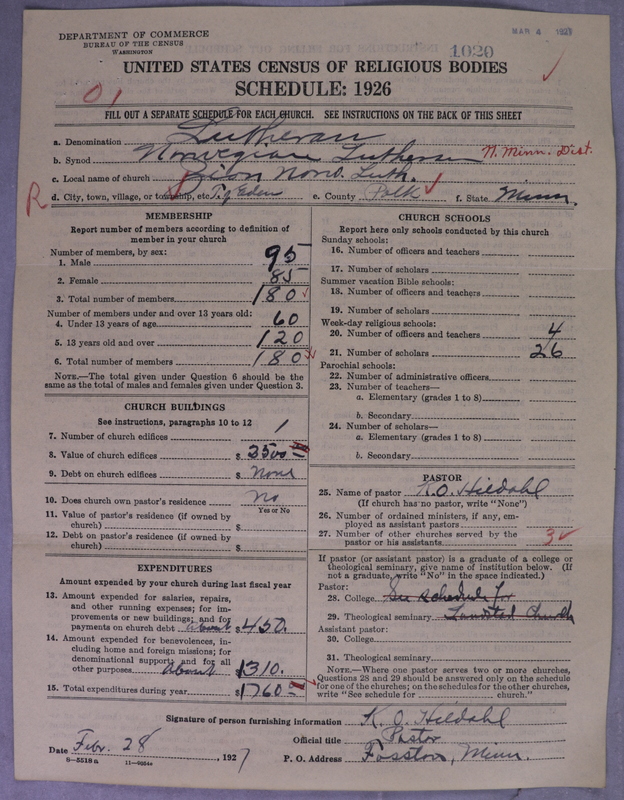 DEPARTMENT OF COMMERCE
BUREAU OF THE CENSUS
WASHINGTON
MAR 4 1927
1020
UNITED STATES CENSUS OF RELIGIOUS BODIES
SCHEDULE: 1926
01
FILL OUT A SEPARATE SCHEDULE FOR EACH CHURCH. SEE INSTRUCTIONS ON THE BACK OF THIS SHEET
a. Denomination Lutheran
b. Synod Norwegian Lutheran N. Minn. Dist.
c. Local name of church Zion Norw. Luth.
R d. City, town, village, or township, etc. T. of Eden e. County Polk f. State Minn.
MEMBERSHIP
Report number of members according to definition of
member in your church
Number of members, by sex:
1. Male 95
2. Female 85
3. Total number of members 180
Number of members under and over 13 years old:
4. Under 13 years of age 60
5. 13 years old and over 120
6. Total number of members 180
NOTE.—The total given under Question 6 should be
same as the total of males and females given under Question 3.
CHURCH BUILDINGS
See instructions, paragraphs 10 to 12
7. Number of church edifices 1
8. Value of church edifices $ 3500
9. Debt on church edifices $ None
10. Does church own pastor's residence No
Yes or No
11. Value of pastor's residence (if owned by
church) $
12. Debt on pastor's residence (if owned by
church) $
EXPENDITURES
Amount expended by your church during last fiscal year
13. Amount expended for salaries, repairs,
and other running expenses; for im-
provements or new buildings; and for
payments on church debt About $ 450.
14. Amount expended for benevolences, in-
cluding home and foreign missions; for
denominational support; and for all
other purposes About $ 1310.
15. Total expenditures during year $ 1760
CHURCH SCHOOLS
Report here only schools conducted by this church
Sunday schools:
16. Number of officers and teachers
17. Number of scholars
Summer vacation Bible schools:
18. Number of officers and teachers
19. Number of scholars
Week-day religious schools:
20. Number of officers and teachers 4
21. Number of scholars 26
Parochial schools:
22. Number of administrative officers
23. Number of teachers—
a. Elementary (grades 1 to 8)
b. Secondary
24. Number of scholars—
a. Elementary (grades 1 to 8)
b. Secondary
PASTOR
25. Name of pastor K. O. Hildahl
(If church has no pastor, write "None")
26. Number of ordained ministers, if any, em-
ployed as assistant pastors
27. Number of other churches served by the
pastor or his assistants 3
If pastor (or assistant pastor) is a graduate of a college or
theological seminary, give name of institution below. (If
not a graduate, write "No" in the space indicated.)
Pastor:
28. College See schedule for
29. Theological seminary Landstad Church
Assistant pastor:
30. College
31. Theological seminary
NOTE.—Where one pastor serves two or more churches,
Questions 28 and 29 should be answered only on the schedule
for one of the churches; on the schedules for the other churches,
write "See schedule for church."
Signature of person furnishing information K. O. Hildahl
Official title Pastor
Date Febr. 28, 1927 P. O. Address Fosston, Minn.
8—5518a 11—9554a